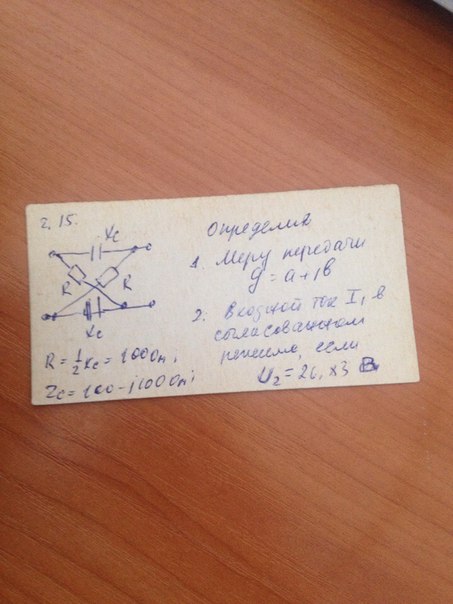 2.15.
Xc
R R
Xc
R = 1/2 Xc = 100 Ом;
Zc = 100 - j100 Ом;
Определить
1. Меру передачи
g = a + jb
2. Входной ток I1 в
согласованном
режиме, если
U2 = 26,83 В